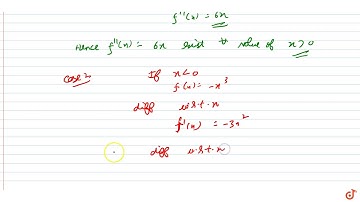 f''(x) = 6x
Hence f''(x) = 6x exist ∀ value of x > 0
Case 2 If x < 0
f(x) = -x³
diff w.r.t. x
f'(x) = -3x²
diff w.r.t. x